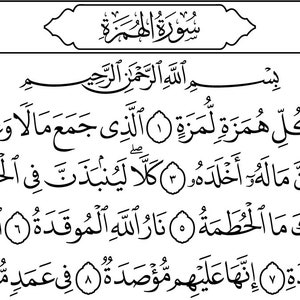 سُورَةُ الهُمَزَةِ
بِسْمِ ٱللَّهِ ٱلرَّحْمَٰنِ ٱلرَّحِيمِ
ـُلِّ هُمَزَةٍ لُّمَزَةٍ ١ ٱلَّذِى جَمَعَ مَالًا وَعَـ
ـنَّ مَالَهُۥٓ أَخْلَدَهُۥ ٣ كَلَّا ۖ لَيُنۢبَذَنَّ فِى ٱلْحُـ
ـكَ مَا ٱلْحُطَمَةُ ٥ نَارُ ٱللَّهِ ٱلْمُوقَدَةُ ٦
ـدَةِ ٧ إِنَّهَا عَلَيْهِم مُّؤْصَدَةٌ ٨ فِى عَمَدٍ مُّـ